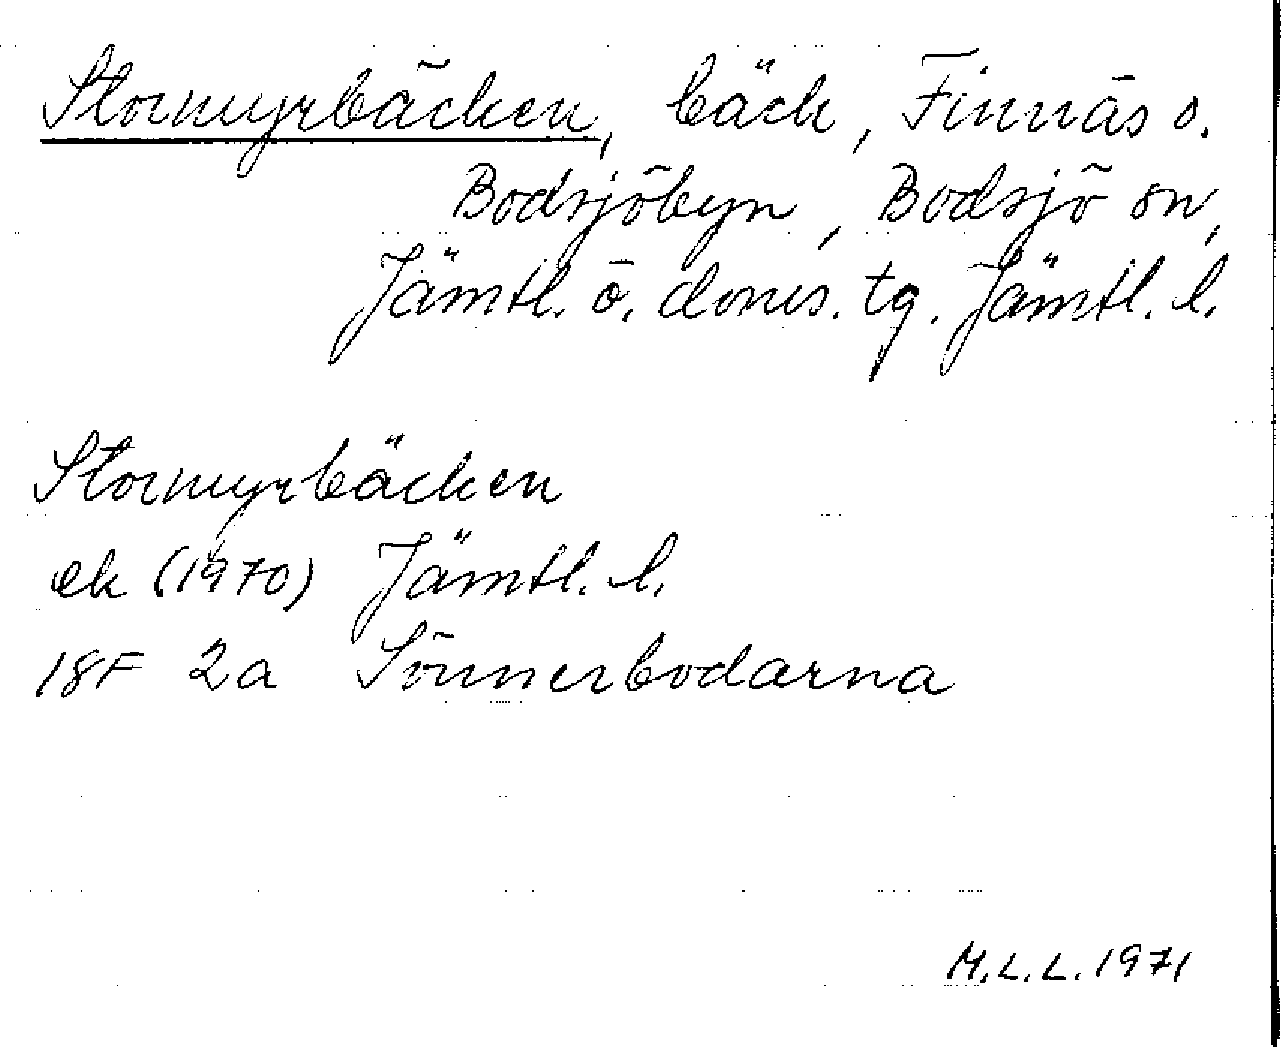 Stormyrbäcken, bäck, Finnäs o.
Bodsjöbyn, Bodsjö sn,
Jämtl. ö. doms. tg. Jämtl. l.
Stormyrbäcken
ek (1970) Jämtl. l.
18F 2a Sönnerbodarna
M.L.L. 1971